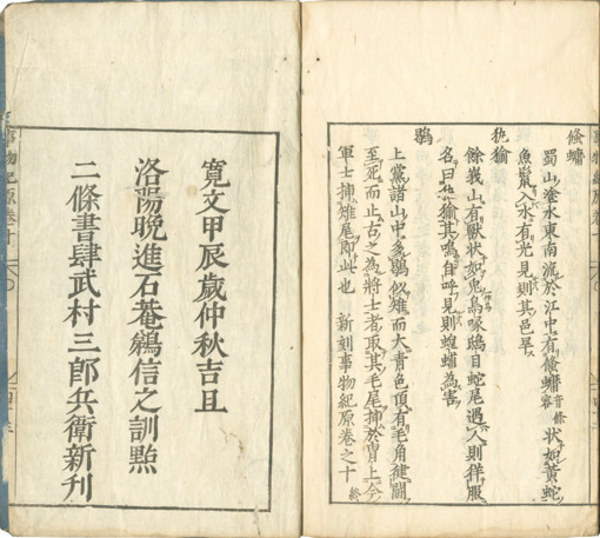 鯈䗤
蜀山塗水東南流於江中有鯈䗤音條容狀如黃蛇
魚鬣入水有光見則其邑旱
犰猶
餘峩山有獸狀如兎鳥喙鴟目蛇尾遇人則佯服
名曰犰猶其鳴自呼見則蝗蝻為害
鶡
上黨諸山中多鶡似雉而大青色頂有毛角健鬬
至死而止古之為將士者取其毛尾挿於冑上今
軍士挿雉尾即此也 新刻事物紀原卷之十 終
寛文甲辰歲仲秋吉旦
洛陽晩進石菴鵜信之訓㸃
二條書肆武村三郎兵衛新刊
事物紀原卷十